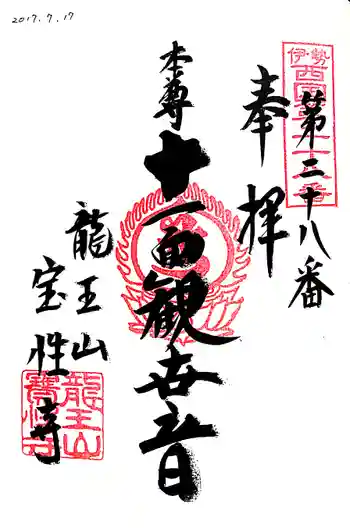 2017.7.17
奉拝
第二十八番
伊勢
西国二十八番
本尊
十一面観世音
龍王山
宝性寺
龍王山
寶性寺